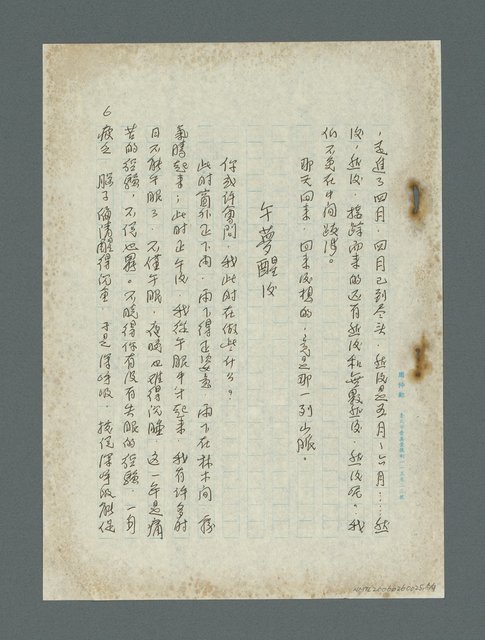 ，走進了四月，四月已到尽头，然後是五月，六月……然
後，然後，接踵而來的还有然後和無數然後，然後呢。我
們不免在中间
那天回来，回来後想的，竟是那一列山脈。
午夢醒後
你或许會問，我此时在做些什么？
此时窗外正下雨，雨下得正姿意，雨下在林木间，
氣騰起来；此时正午後，我從午眠中才起来，我有许多时
日不能午眠了，不僅午眠，夜晴也难得沉睡，这一年是痛
苦的經驗，不提也罷。不曉得你有没有失眠的經驗，一身
疲乏，腦子偏清醒得沉重，于是深呼吸，据说深呼吸能促
6
周仲勳